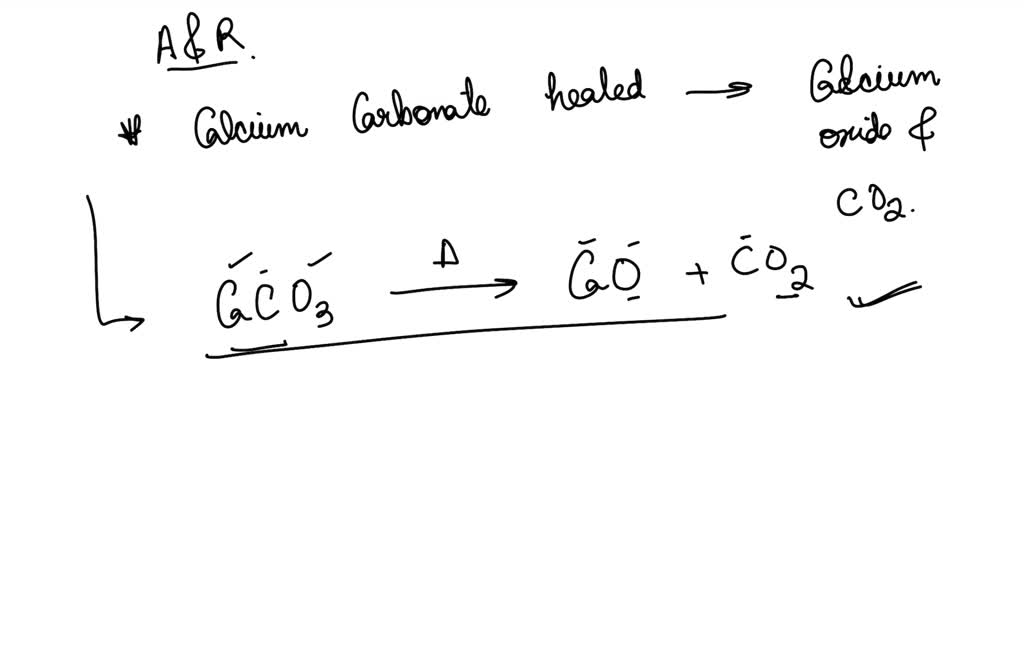 A & R.
* Calcium Carbonate heated → Calcium
oxide &
CO2.
CaCO3 Δ → CaO + CO2